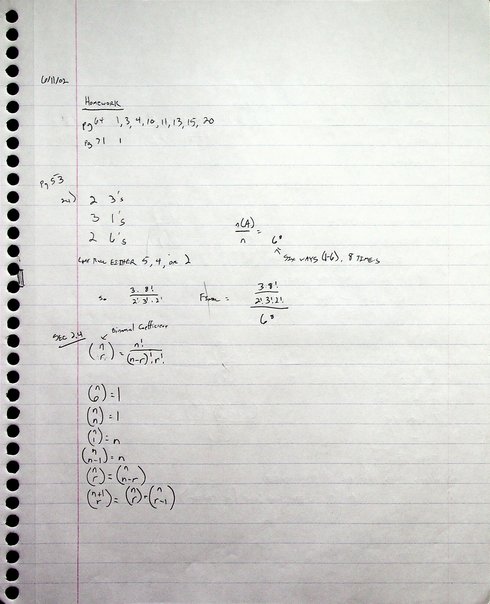 6/11/02
Homework
pg 64 1, 3, 4, 10, 11, 13, 15, 20
pg 71 1
pg 53
2 3's
3 1's
2 6's
n(A)/n = 6⁸
Last Roll EITHER 5, 4, or 2
SIX WAYS (1-6), 8 TIMES
so 3·8!/(2!·3!·2!)
= (3·8!/(2!·3!·2!))/6⁸
SEC 2.4
Binomial Coefficient
(n r) = n!/((n-r)!·r!)
(n 0) = 1
(n n) = 1
(n 1) = n
(n n-1) = n
(n r) = (n n-r)
(n+1 r) = (n r) + (n r-1)